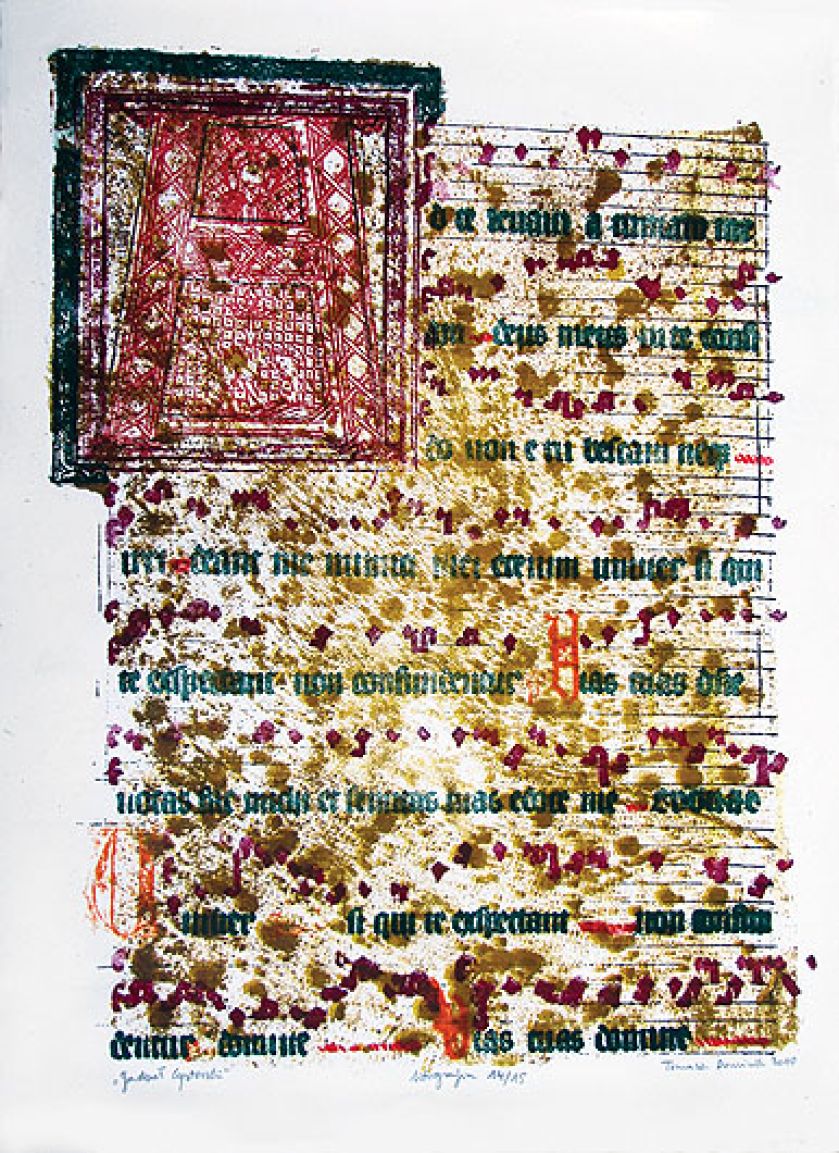 d te leuaui a animam me
am deus meus in te confi
do non e ru bescam neq
irri deant me inimici mei etenim uniuer si qui
te exspectant non confundentur Vias tuas dñe
notas fac michi et semitas tuas edoce me
Uniuer si qui te exspectant non confun
dentur domine Vias tuas domine
litografia 14/15 Tomasz